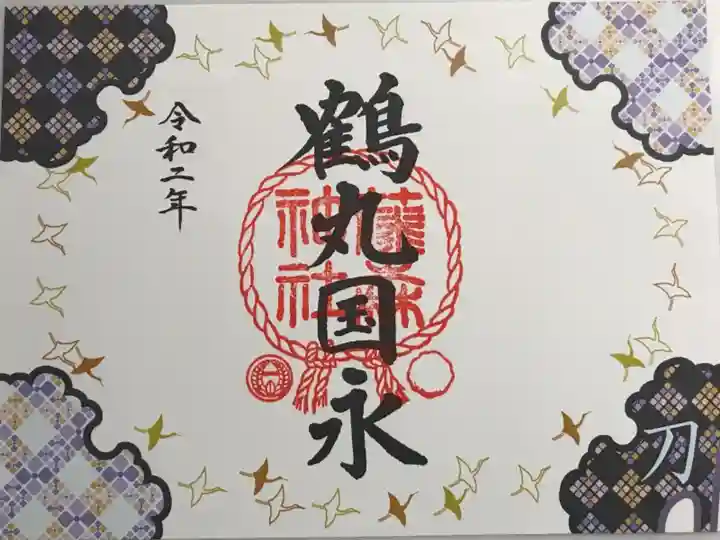 鶴丸国永
藤森
神社
令和二年
刀